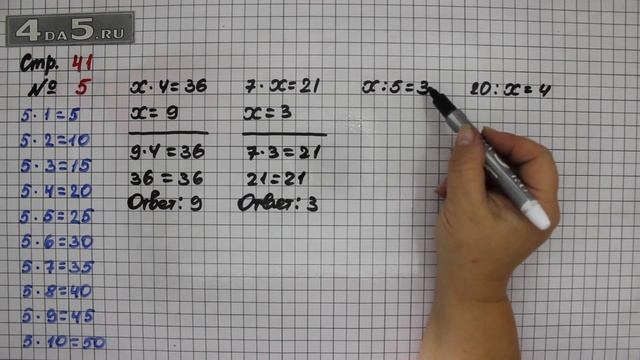 4DA5.RU
Стр. 41
№ 5
5·1=5
5·2=10
5·3=15
5·4=20
5·5=25
5·6=30
5·7=35
5·8=40
5·9=45
5·10=50
x·4=36
x=9
9·4=36
36=36
Ответ: 9
7·x=21
x=3
7·3=21
21=21
Ответ: 3
x:5=3
20:x=4